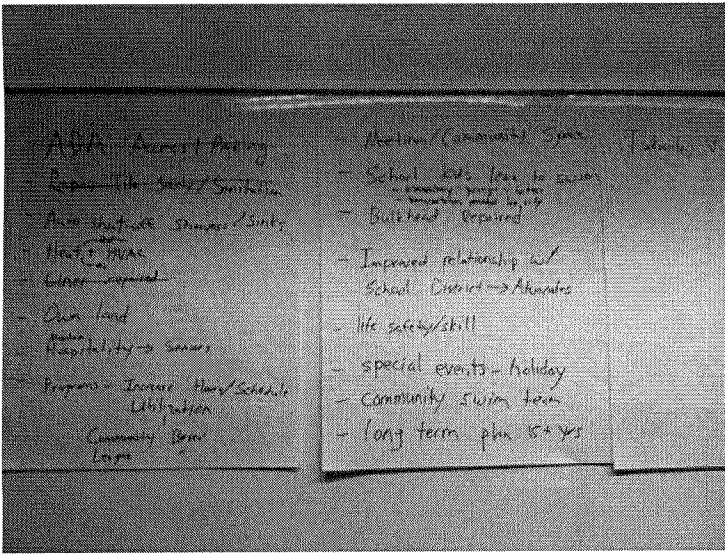 - ADA Access/Parking
- Repair Tile Safety/Sanitation
- Auto shut-off showers/sinks
- Heat + HVAC
- Liner repaired
- Own land
- Hospitality → Seniors
- Programs - Increase Hours/Schedule
Utilization
Community
- Meeting/Community Space
- School kids learn to swim
- Bulkhead Repaired
- Improved relationship w/
School District → Advocates
- life safety/skill
- special events - holiday
- Community swim team
- long term plan 15+ yrs